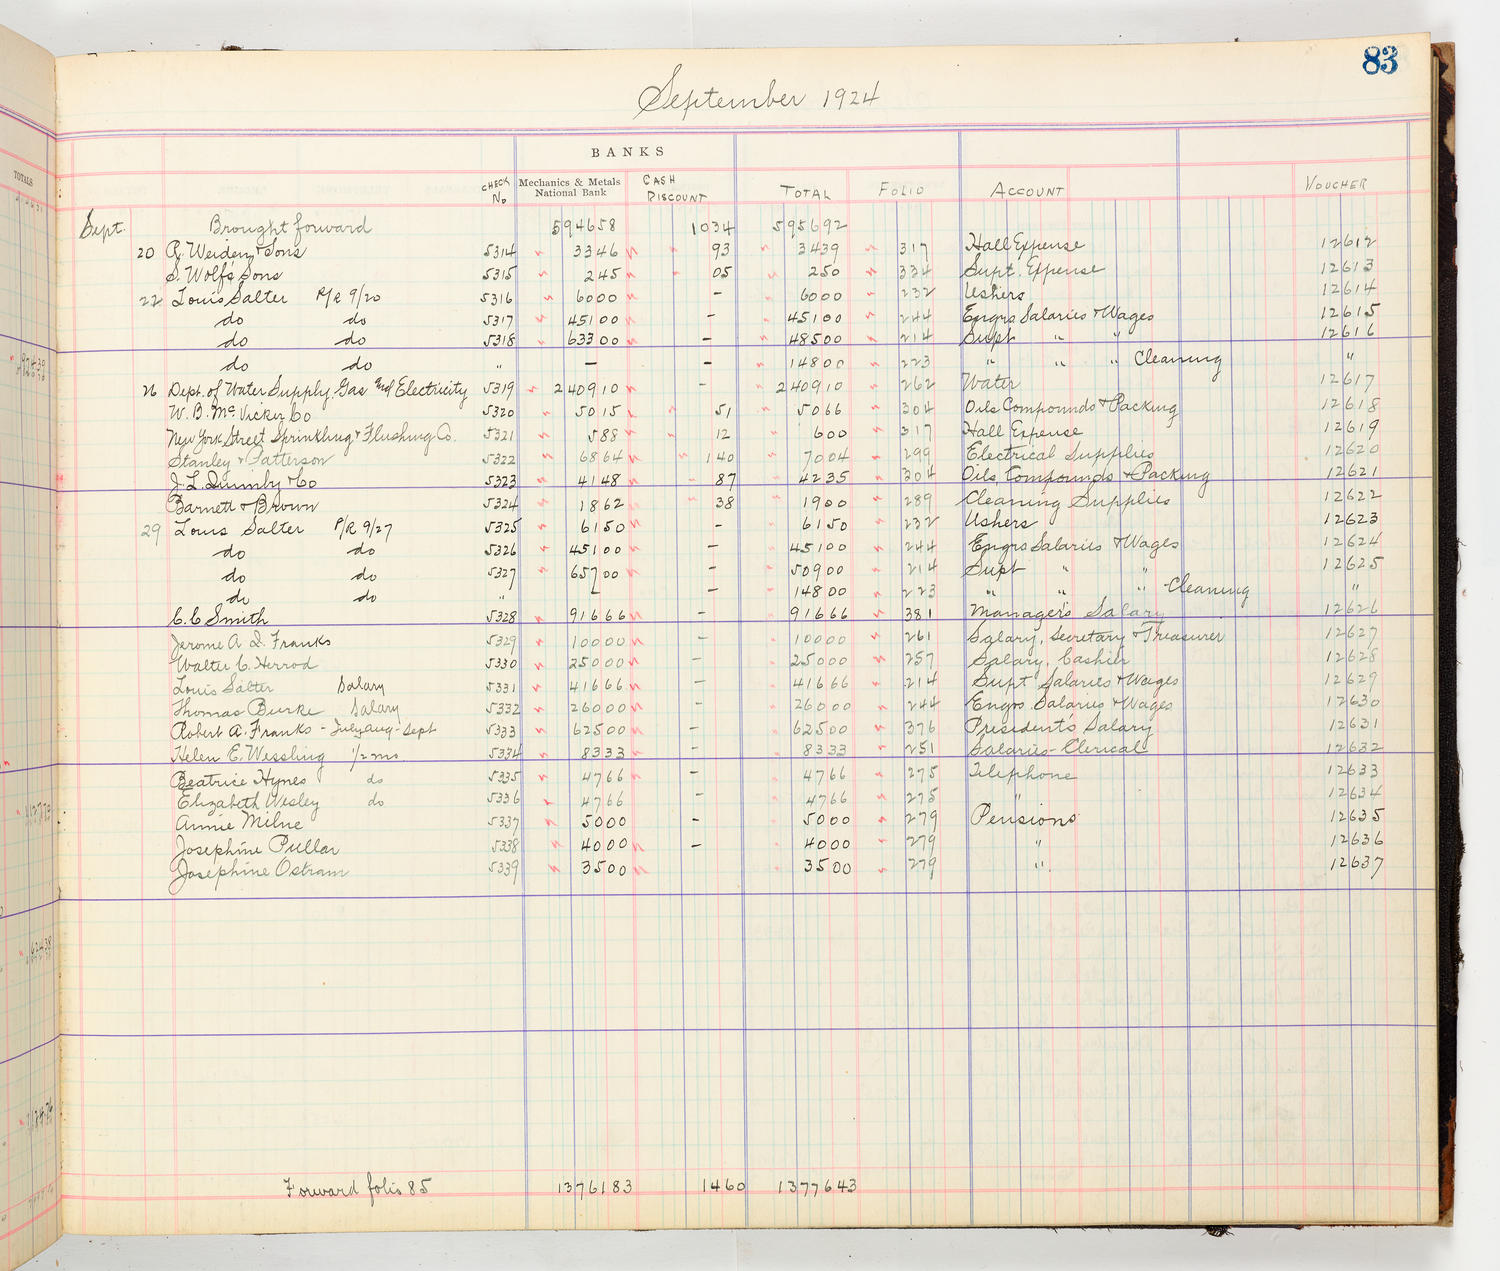 83
September 1924
TOTALS
BANKS
CHECK No Mechanics & Metals National Bank CASH DISCOUNT TOTAL FOLIO ACCOUNT VOUCHER
Sept. Brought forward 594658 1034 595692
20 R. Weiden & Sons 5314 " 3346 " " 93 " 3439 " 317 Hall Expense 12612
S. Wolf's Sons 5315 " 245 " " 05 " 250 " 334 Supt. Expense 12613
22 Louis Salter P/R 9/20 5316 " 6000 " - " 6000 " 232 Ushers 12614
do do 5317 " 45100 " - " 45100 " 244 Engrs Salaries & Wages 12615
do do 5318 " 63300 " - " 48500 " 214 Supt " " 12616
do do " - - " 14800 " 223 " " " Cleaning "
26 Dept. of Water Supply, Gas and Electricity 5319 " 240910 " - " 240910 " 262 Water 12617
W. B. McVicker Co 5320 " 5015 " " 51 " 5066 " 304 Oils Compounds & Packing 12618
New York Street Sprinkling & Flushing Co. 5321 " 588 " " 12 " 600 " 317 Hall Expense 12619
Stanley & Patterson 5322 " 6864 " " 140 " 7004 " 299 Electrical Supplies 12620
J. L. Quimby & Co 5323 " 4148 " " 87 " 4235 " 304 Oils, Compounds & Packing 12621
Barnett & Brown 5324 " 1862 " " 38 " 1900 " 289 Cleaning Supplies 12622
29 Louis Salter P/R 9/27 5325 " 6150 " - " 6150 " 232 Ushers 12623
do do 5326 " 45100 " - " 45100 " 244 Engrs Salaries & Wages 12624
do do 5327 " 65700 " - " 50900 " 214 Supt " " 12625
do do " - - " 14800 " 223 " " " Cleaning "
C. C. Smith 5328 " 91666 " - " 91666 " 381 Manager's Salary 12626
Jerome A. Q. Franks 5329 " 10000 " - " 10000 " 261 Salary, Secretary & Treasurer 12627
Walter C. Herrod 5330 " 25000 " - " 25000 " 257 Salary, Cashier 12628
Louis Salter Salary 5331 " 41666 " - " 41666 " 214 Supt Salaries & Wages 12629
Thomas Burke Salary 5332 " 26000 " - " 26000 " 244 Engrs. Salaries & Wages 12630
Robert A. Franks - July Aug - Sept 5333 " 62500 " - " 62500 " 376 President's Salary 12631
Helen E. Wessling 1/2 mo 5334 " 8333 " - " 8333 " 251 Salaries - Clerical 12632
Beatrice Hynes do 5335 " 4766 " - " 4766 " 275 Telephone 12633
Elizabeth Wesley do 5336 " 4766 " - " 4766 " 275 " 12634
Annie Milne 5337 " 5000 - " 5000 " 279 Pensions 12635
Josephine Pullar 5338 " 4000 " - " 4000 " 279 " 12636
Josephine Ostram 5339 " 3500 " " 3500 " 279 " 12637
Forward folio 85 1376183 1460 1377643